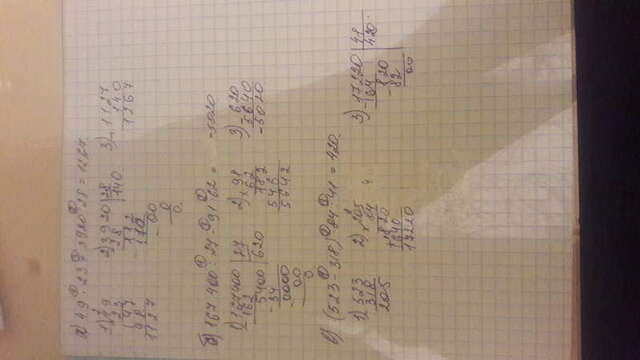 а) 49 · 23 + 3920 : 28 = 1267
1) 49 2) 3920 | 28 3) 1127
23 28 140 140
147 112 1267
98 112
1127 00
0
0
б) 167 400 : 27 - 91 · 62 = -5020
1) 167400 | 27 2) 98 3) 620
162 620 62 5640
5400 182 -5020
54 546
0000 5642
00
0
в) (523 - 318) · 84 : 41 = 420
1) 523 2) 205 3) 17220 | 41
318 84 164 420
205 820 820
1640 82
17220 00